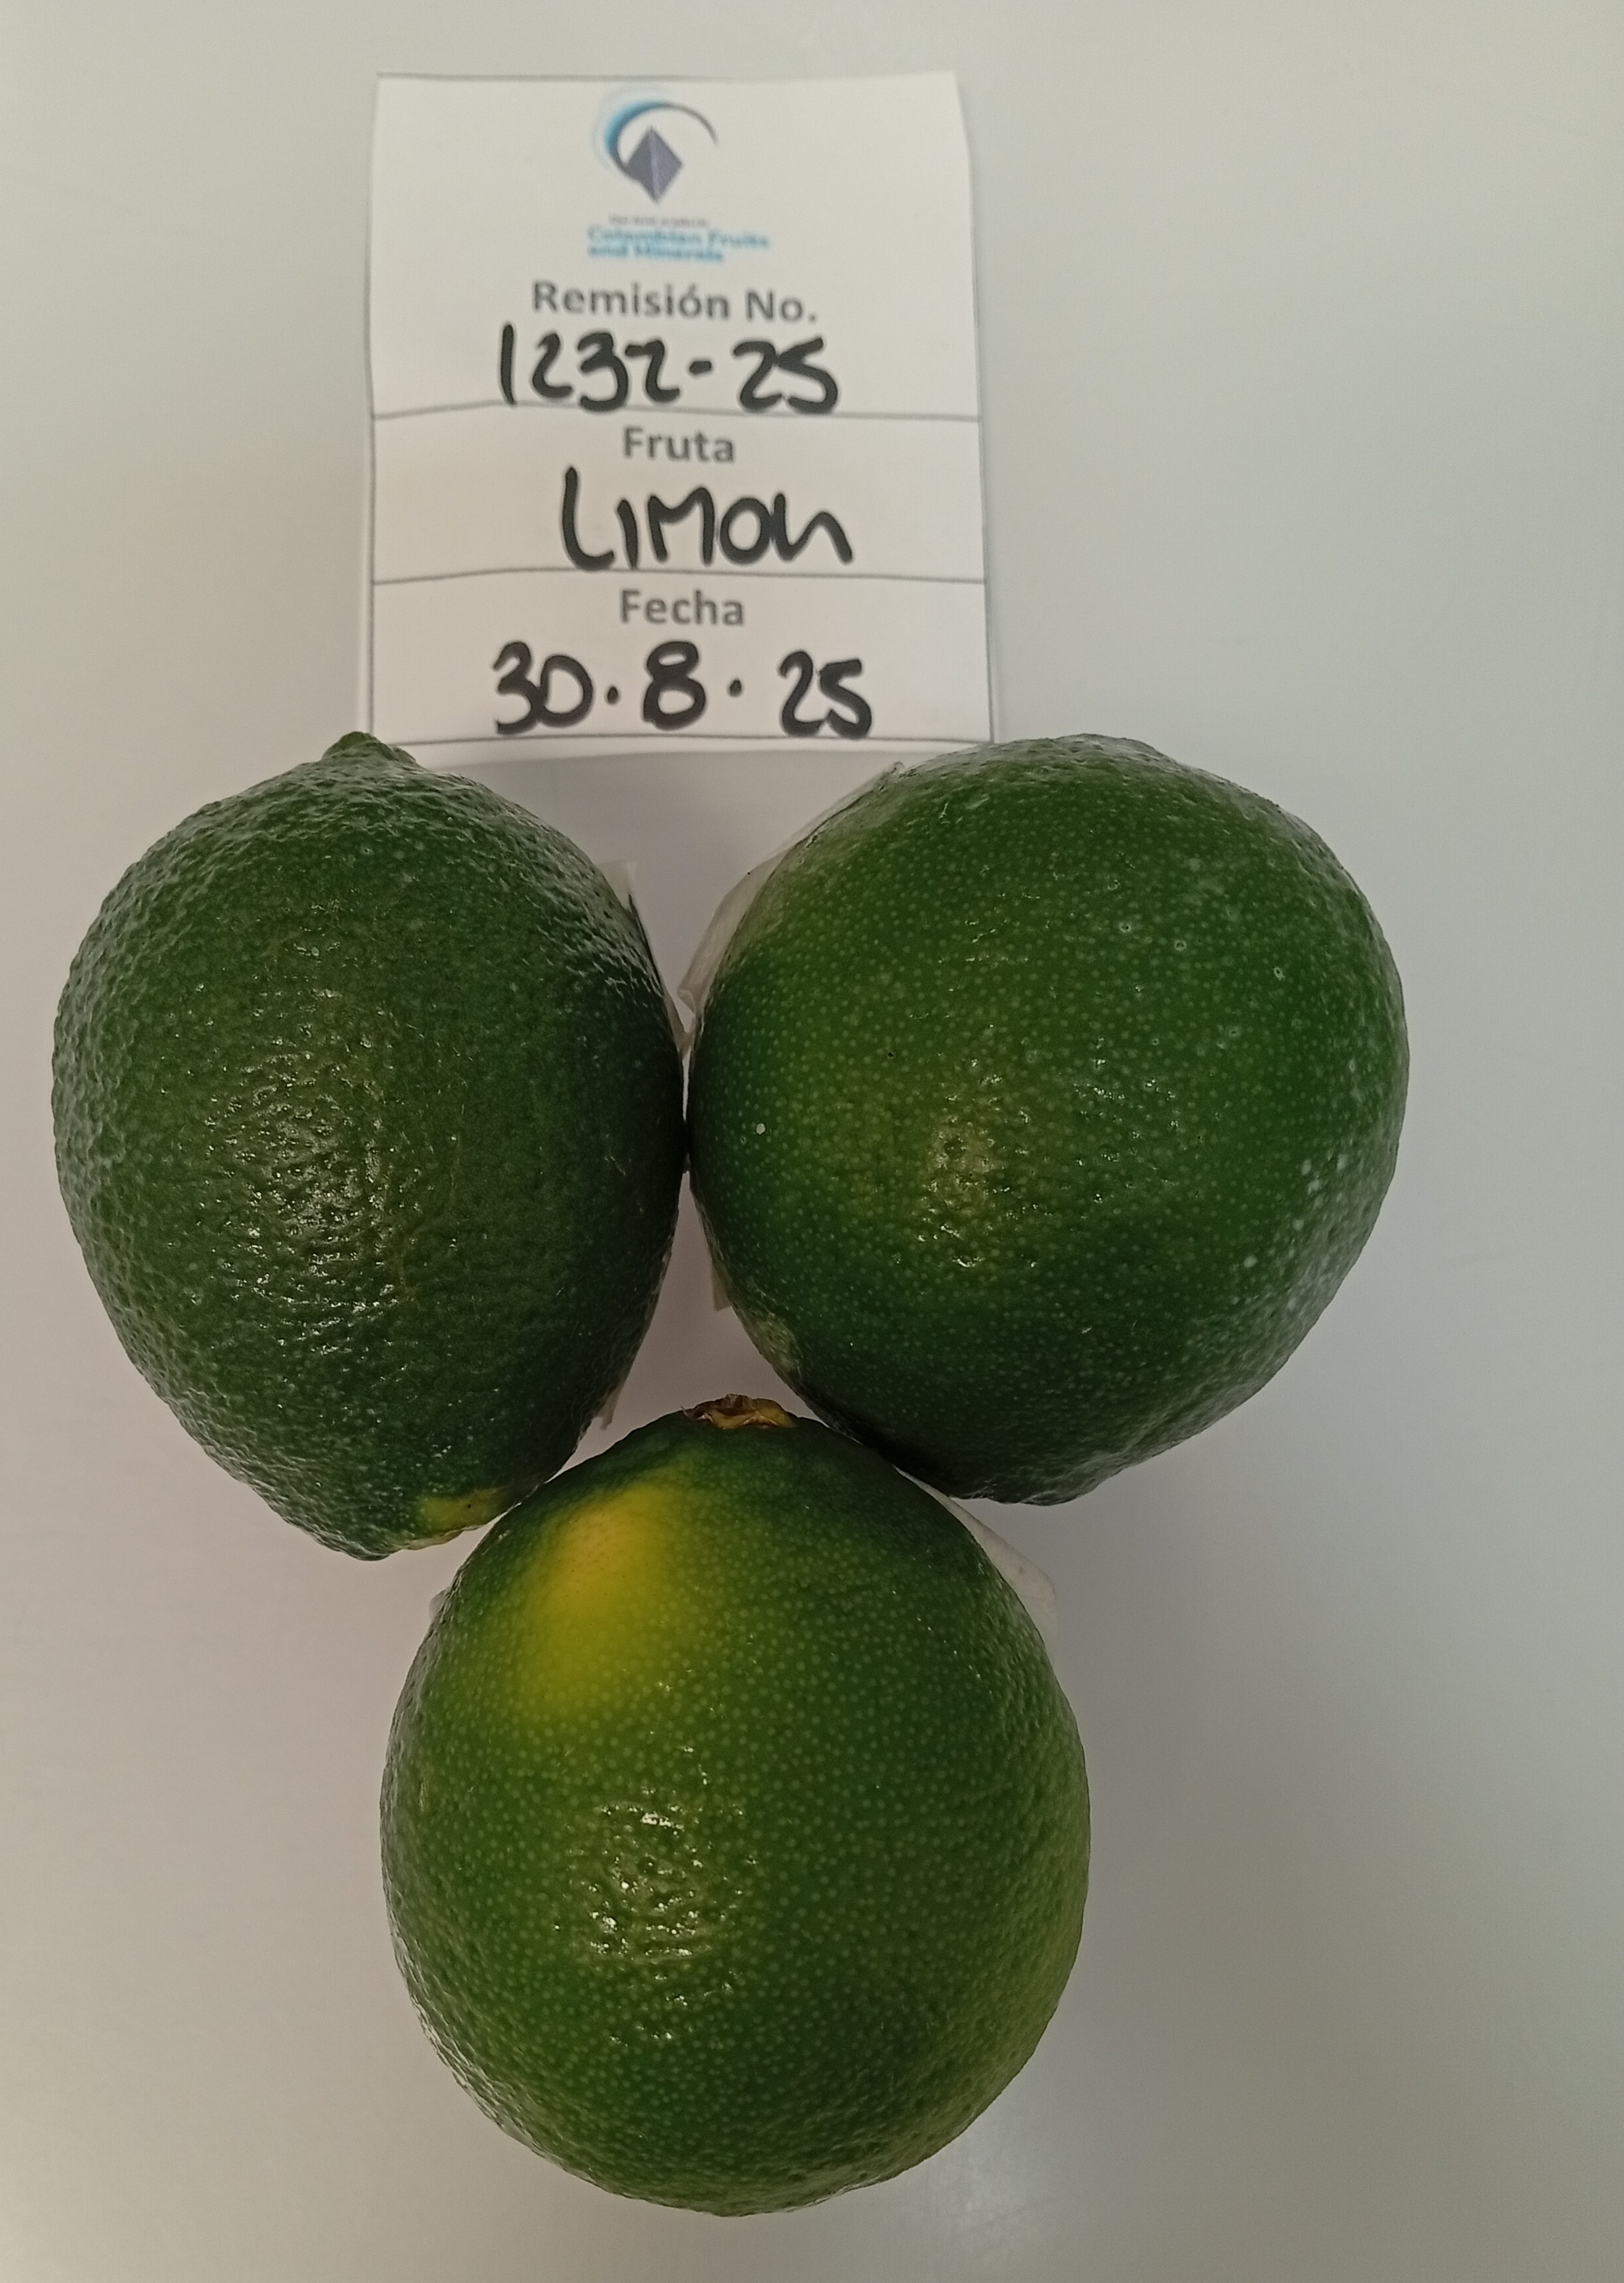 Colombian Fruits
and Minerals
Remisión No.
1232-25
Fruta
LIMON
Fecha
30·8·25